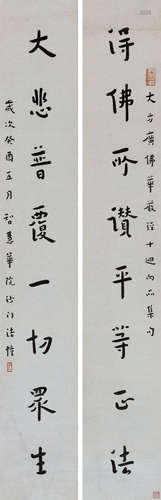 大方廣佛華嚴經十迴向品集句
得佛所讚平等正法
大悲普覆一切眾生
歲次癸酉五月智慧華院沙門